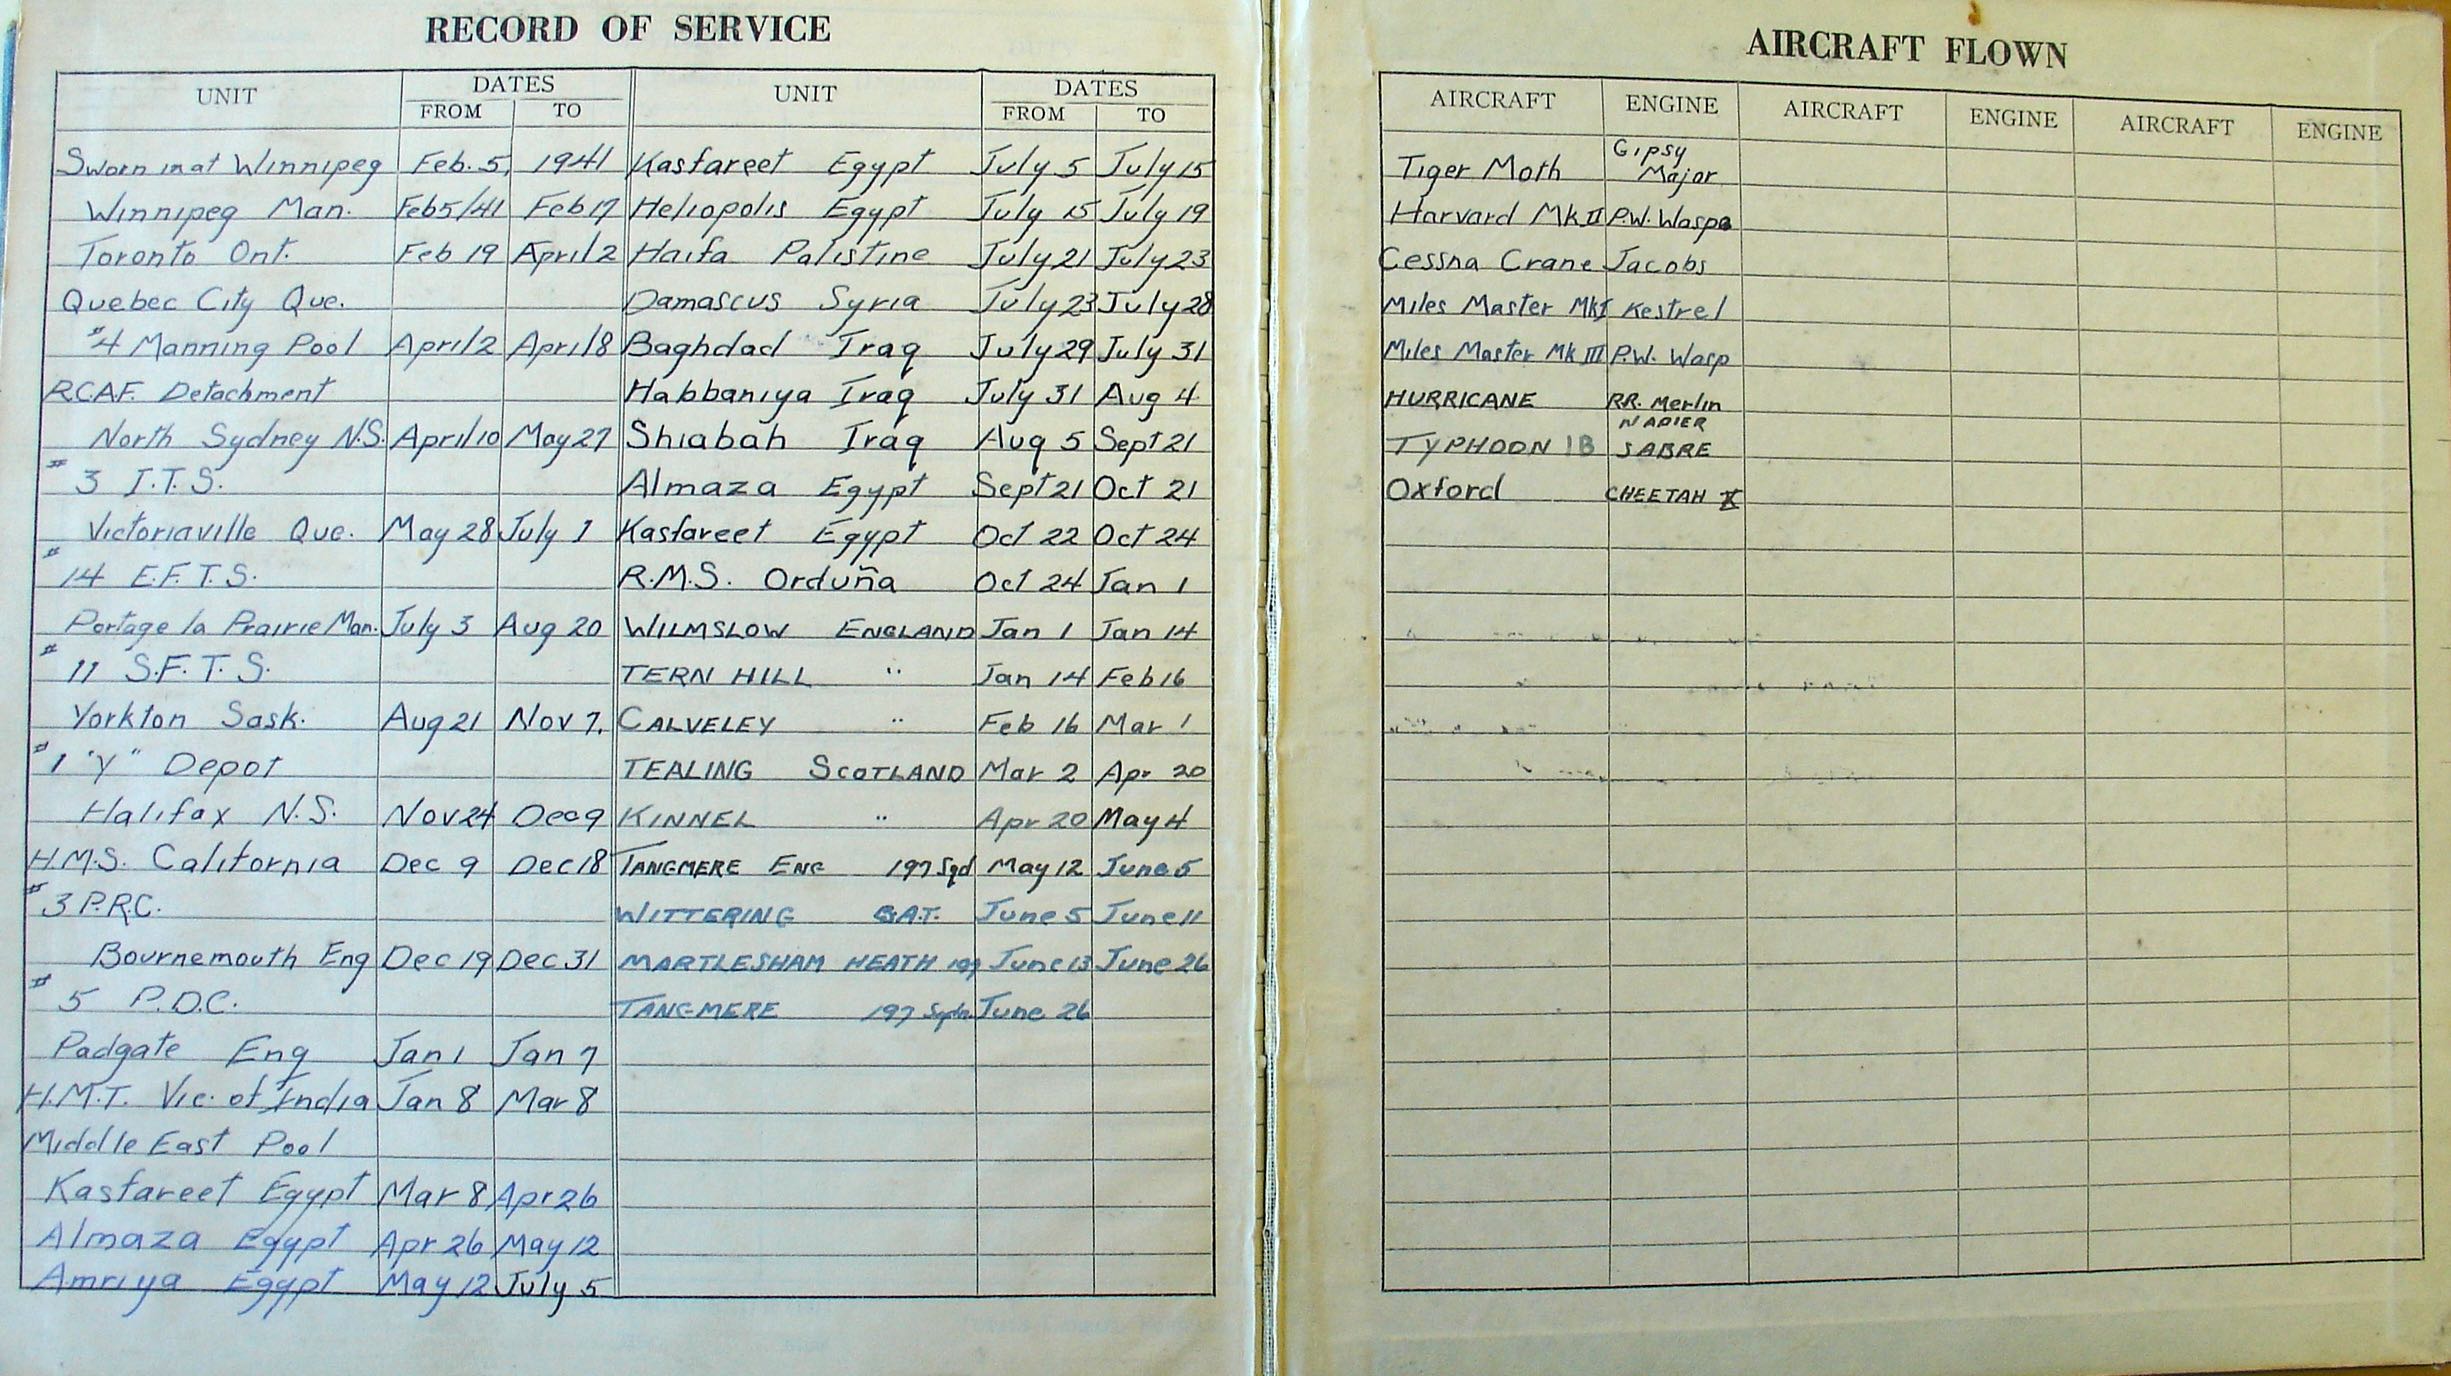 RECORD OF SERVICE
UNIT DATES FROM TO UNIT DATES FROM TO
Sworn in at Winnipeg Feb. 5, 1941
Winnipeg Man. Feb 5/41 Feb 17
Toronto Ont. Feb 19 April 2
Quebec City Que.
#4 Manning Pool April 2 April 8
R.C.A.F. Detachment
North Sydney N.S. April 10 May 27
# 3 I.T.S.
Victoriaville Que. May 28 July 1
# 14 E.F.T.S.
Portage la Prairie Man. July 3 Aug 20
# 11 S.F.T.S.
Yorkton Sask. Aug 21 Nov 7.
# 1 "Y" Depot
Halifax N.S. Nov 24 Dec 9
H.M.S. California Dec 9 Dec 18
# 3 P.R.C.
Bournemouth Eng Dec 19 Dec 31
# 5 P.D.C.
Padgate Eng Jan 1 Jan 7
H.M.T. Vic. of India Jan 8 Mar 8
Middle East Pool
Kasfareet Egypt Mar 8 Apr 26
Almaza Egypt Apr 26 May 12
Amriya Egypt May 12 July 5
Kasfareet Egypt July 5 July 15
Heliopolis Egypt July 15 July 19
Haifa Palistine July 21 July 23
Damascus Syria July 23 July 28
Baghdad Iraq July 29 July 31
Habbaniya Iraq July 31 Aug 4
Shiabah Iraq Aug 5 Sept 21
Almaza Egypt Sept 21 Oct 21
Kasfareet Egypt Oct 22 Oct 24
R.M.S. Orduña Oct 24 Jan 1
WILMSLOW ENGLAND Jan 1 Jan 14
TERN HILL " Jan 14 Feb 16
CALVELEY " Feb 16 Mar 1
TEALING SCOTLAND Mar 2 Apr 20
KINNEL " Apr 20 May 4
TANGMERE ENG 197 Sqd May 12 June 5
WITTERING June 5 June 11
MARTLESHAM HEATH 197 June 13 June 26
TANGMERE 197 June 26
AIRCRAFT FLOWN
AIRCRAFT ENGINE AIRCRAFT ENGINE AIRCRAFT ENGINE
Tiger Moth Gipsy Major
Harvard Mk II P.W. Wasp
Cessna Crane Jacobs
Miles Master Mk I Kestrel
Miles Master Mk III P.W. Wasp
HURRICANE RR. Merlin
TYPHOON 1B NAPIER SABRE
Oxford CHEETAH X